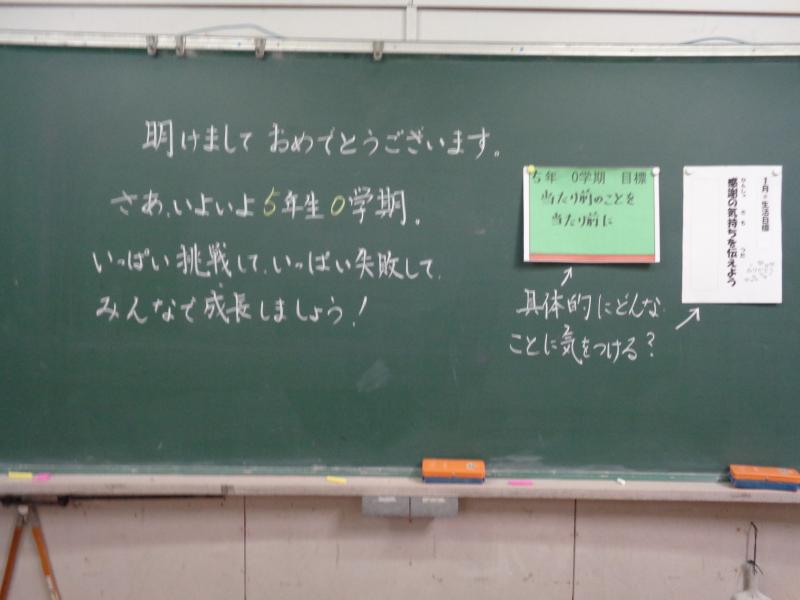 明けまして おめでとうございます。
さあ、いよいよ5年生0学期。
いっぱい挑戦して、いっぱい失敗して、
みんなで成長しましょう!
5年 0学期 目標
当たり前のことを
当たり前に
具体的にどんな
ことに気をつける?
1月の生活目標
感謝の気持ちを伝えよう